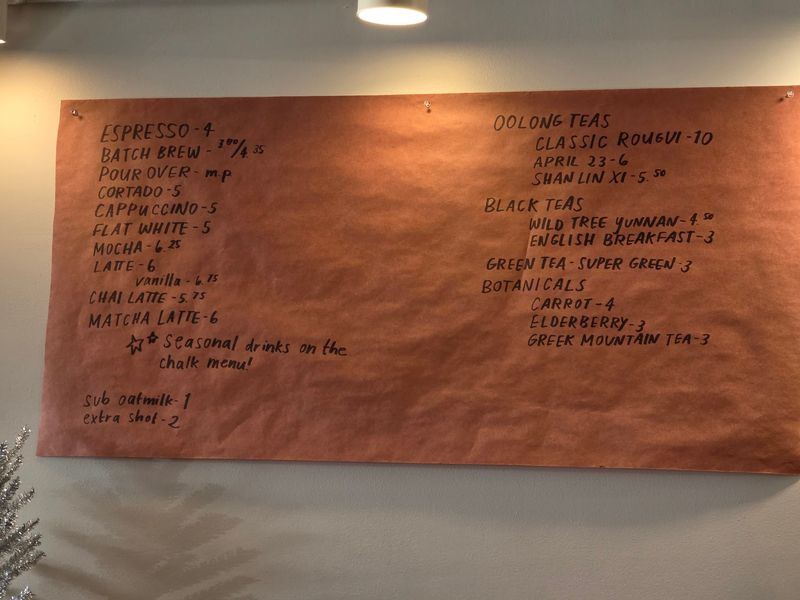 ESPRESSO - 4
BATCH BREW - 3.00/4.35
POUR OVER - m.p.
CORTADO - 5
CAPPUCCINO - 5
FLAT WHITE - 5
MOCHA - 6.25
LATTE - 6
vanilla - 6.75
CHAI LATTE - 5.75
MATCHA LATTE - 6
☆☆ Seasonal drinks on the
chalk menu!
sub oatmilk - 1
extra shot - 2
OOLONG TEAS
CLASSIC ROUGUI - 10
APRIL 23 - 6
SHAN LIN XI - 5.50
BLACK TEAS
WILD TREE YUNNAN - 4.50
ENGLISH BREAKFAST - 3
GREEN TEA - SUPER GREEN - 3
BOTANICALS
CARROT - 4
ELDERBERRY - 3
GREEK MOUNTAIN TEA - 3